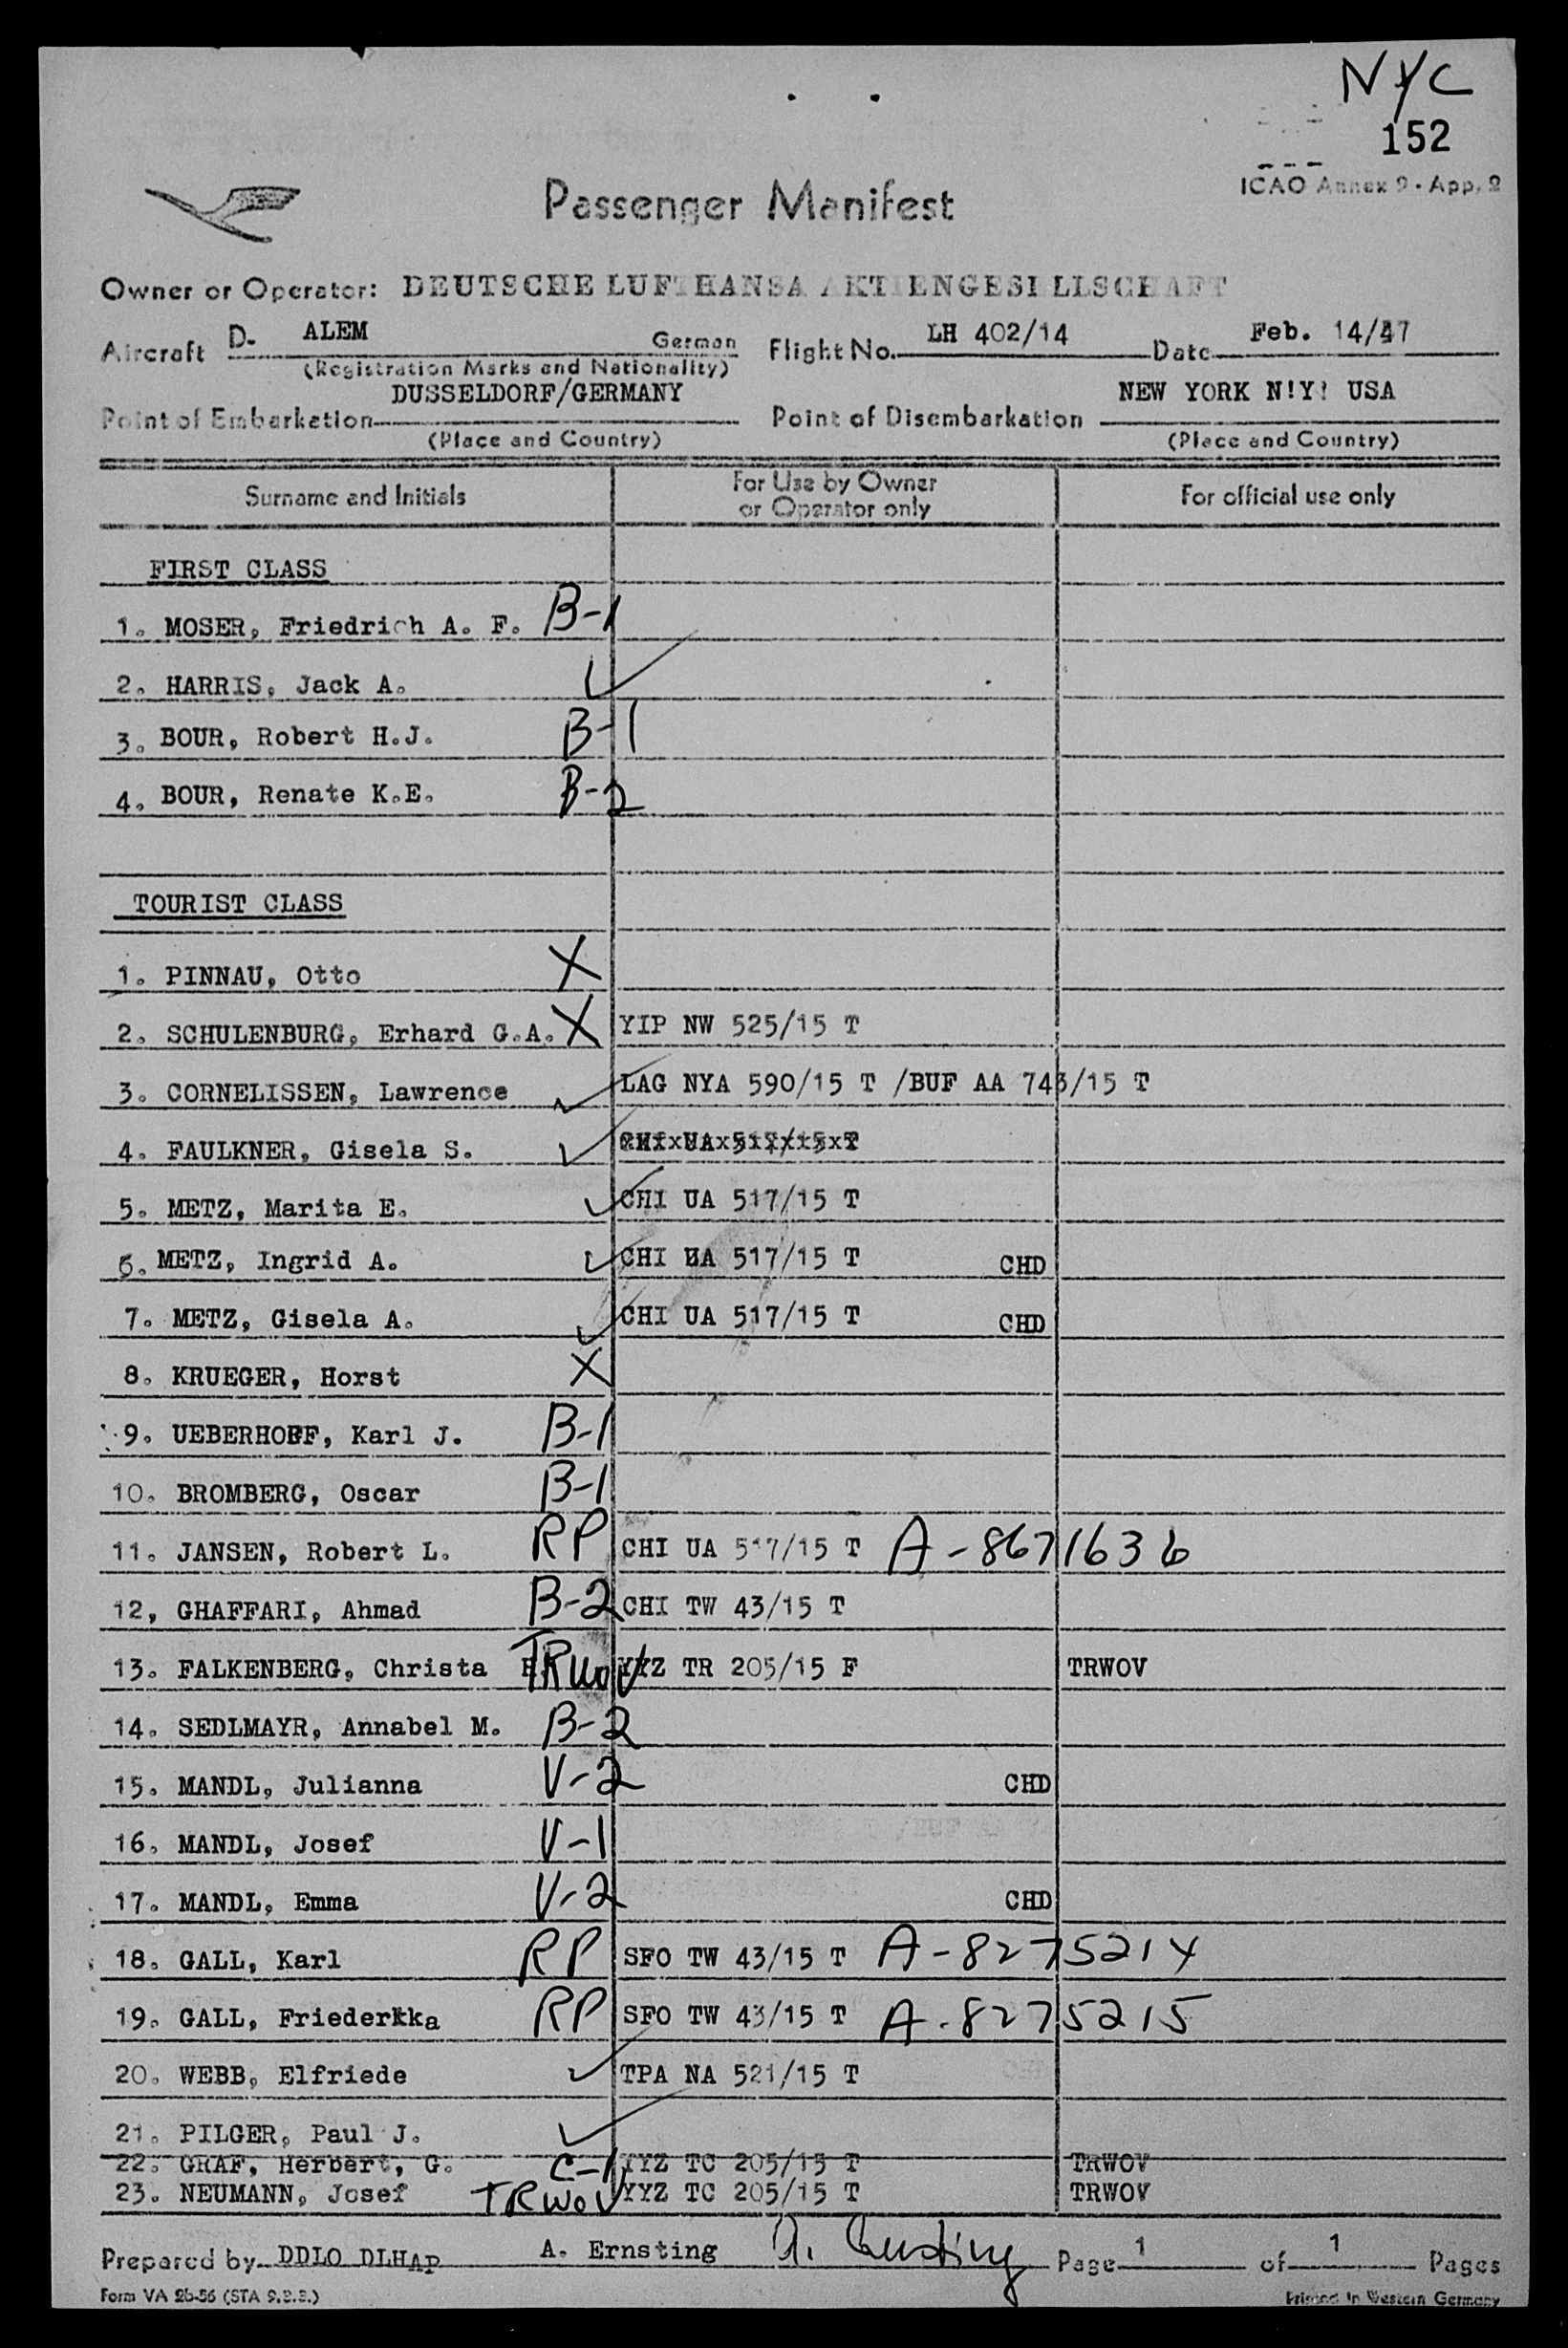 NYC
152
ICAO Annex 9 - App. 2
Passenger Manifest
Owner or Operator: DEUTSCHE LUFTHANSA AKTIENGESELLSCHAFT
Aircraft D- ALEM German Flight No. LH 402/14 Date Feb. 14/57
(Registration Marks and Nationality)
DUSSELDORF/GERMANY NEW YORK N!Y! USA
Point of Embarkation Point of Disembarkation
(Place and Country) (Place and Country)
Surname and Initials For Use by Owner or Operator only For official use only
FIRST CLASS
1. MOSER, Friedrich A. F. B-1
2. HARRIS, Jack A. ✓
3. BOUR, Robert H.J. B-1
4. BOUR, Renate K.E. B-2
TOURIST CLASS
1. PINNAU, Otto X
2. SCHULENBURG, Erhard G.A. X YIP NW 525/15 T
3. CORNELISSEN, Lawrence ✓ LAG NYA 590/15 T /BUF AA 743/15 T
4. FAULKNER, Gisela S. ✓ CHI UA 517/15 T
5. METZ, Marita E. ✓ CHI UA 517/15 T
6. METZ, Ingrid A. ✓ CHI UA 517/15 T CHD
7. METZ, Gisela A. ✓ CHI UA 517/15 T CHD
8. KRUEGER, Horst X
9. UEBERHOFF, Karl J. B-1
10. BROMBERG, Oscar B-1
11. JANSEN, Robert L. RP CHI UA 517/15 T A-8671636
12, GHAFFARI, Ahmad B-2 CHI TW 43/15 T
13. FALKENBERG, Christa TRWOV YYZ TR 205/15 F TRWOV
14. SEDLMAYR, Annabel M. B-2
15. MANDL, Julianna V-2 CHD
16. MANDL, Josef V-1
17. MANDL, Emma V-2 CHD
18. GALL, Karl RP SFO TW 43/15 T A-8275214
19. GALL, Friederkka RP SFO TW 43/15 T A-8275215
20. WEBB, Elfriede ✓ TPA NA 521/15 T
21. PILGER, Paul J. ✓
22. GRAF, Herbert, G. C-1 YYZ TC 205/15 T TRWOV
23. NEUMANN, Josef TRWOV YYZ TC 205/15 T TRWOV
Prepared by DDLO DLHAP A. Ernsting A. Ernsting Page 1 of 1 Pages
Form VA 2b-56 (STA 9.2.2.) Printed in Western Germany